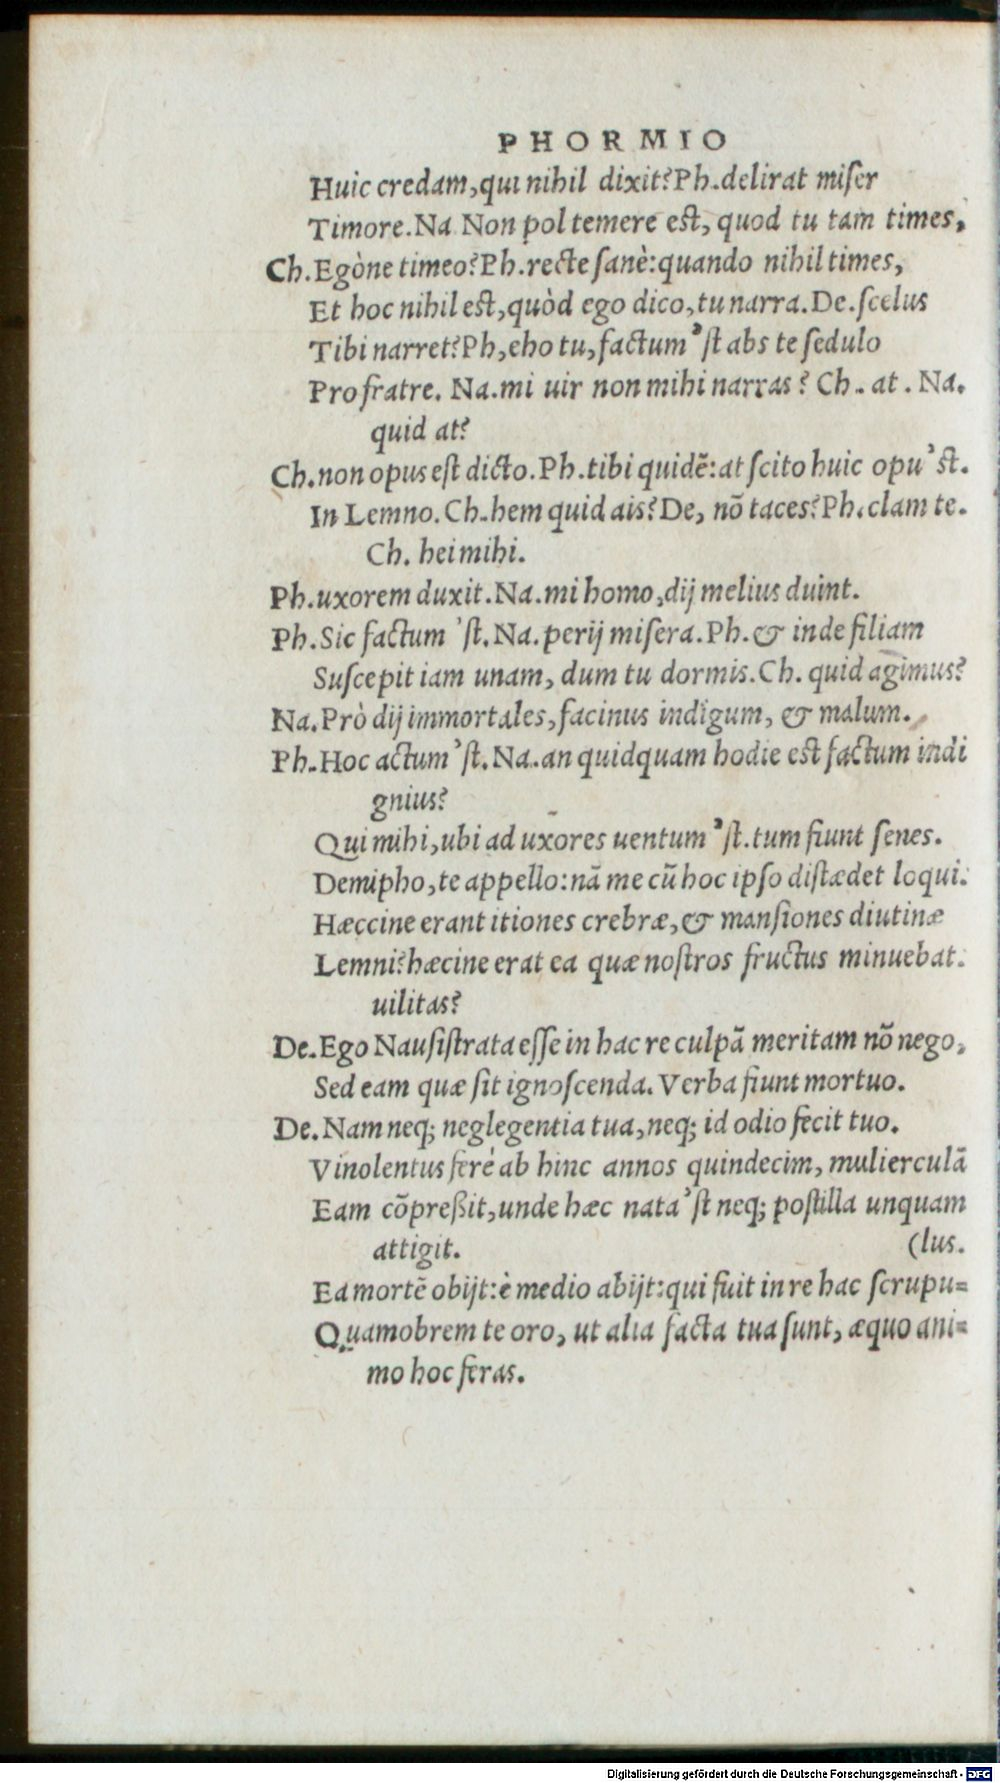 PHORMIO
Huic credam, qui nihil dixit? Ph. delirat miser
Timore. Na Non pol temere est, quod tu tam times,
Ch. Egòne timeo? Ph. recte sanè: quando nihil times,
Et hoc nihil est, quòd ego dico, tu narra. De. scelus
Tibi narret? Ph, eho tu, factum 'st abs te sedulo
Pro fratre. Na. mi uir non mihi narras? Ch. at. Na.
quid at?
Ch. non opus est dicto. Ph. tibi quidē: at scito huic opu 'st.
In Lemno. Ch. hem quid ais? De, nō taces? Ph. clam te.
Ch. hei mihi.
Ph. uxorem duxit. Na. mi homo, dij melius duint.
Ph. Sic factum 'st. Na. perij misera. Ph. & inde filiam
Suscepit iam unam, dum tu dormis. Ch. quid agimus?
Na. Prò dij immortales, facinus indigum, & malum.
Ph. Hoc actum 'st. Na. an quidquam hodie est factum indi
gnius?
Qui mihi, ubi ad uxores uentum 'st. tum fiunt senes.
Demipho, te appello: nā me cū hoc ipso distædet loqui.
Hæccine erant itiones crebræ, & mansiones diutinæ
Lemni? hæcine erat ea quæ nostros fructus minuebat.
uilitas?
De. Ego Nausistrata esse in hac re culpā meritam nō nego,
Sed eam quæ sit ignoscenda. Verba fiunt mortuo.
De. Nam neq; neglegentia tua, neq; id odio fecit tuo.
Vinolentus ferè ab hinc annos quindecim, mulierculā
Eam cōpreßit, unde hæc nata 'st neq; postilla unquam
attigit. (lus.
Ea mortē obijt: è medio abijt: qui fuit in re hac scrupu=
Quamobrem te oro, ut alia facta tua sunt, æquo ani=
mo hoc feras.
Digitalisierung gefördert durch die Deutsche Forschungsgemeinschaft - DFG